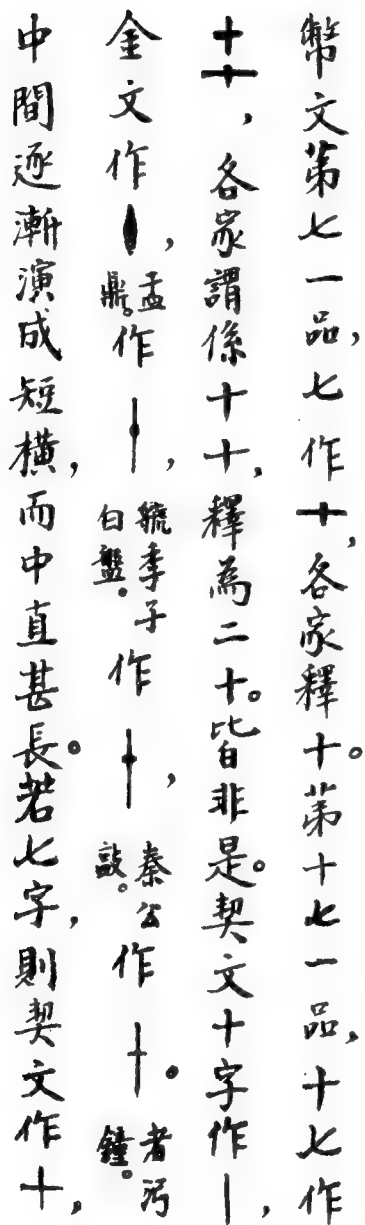 幣文第七一品，七作十，各家釋十。第十七一品，十七作
十十，各家謂係十十，釋為二十。皆非是。契文十字作丨，
金文作，盂鼎。作，虢季子白盤。作，秦公𣪘。作。者鐘。
中間逐漸演成短橫，而中直甚長。若七字，則契文作十，